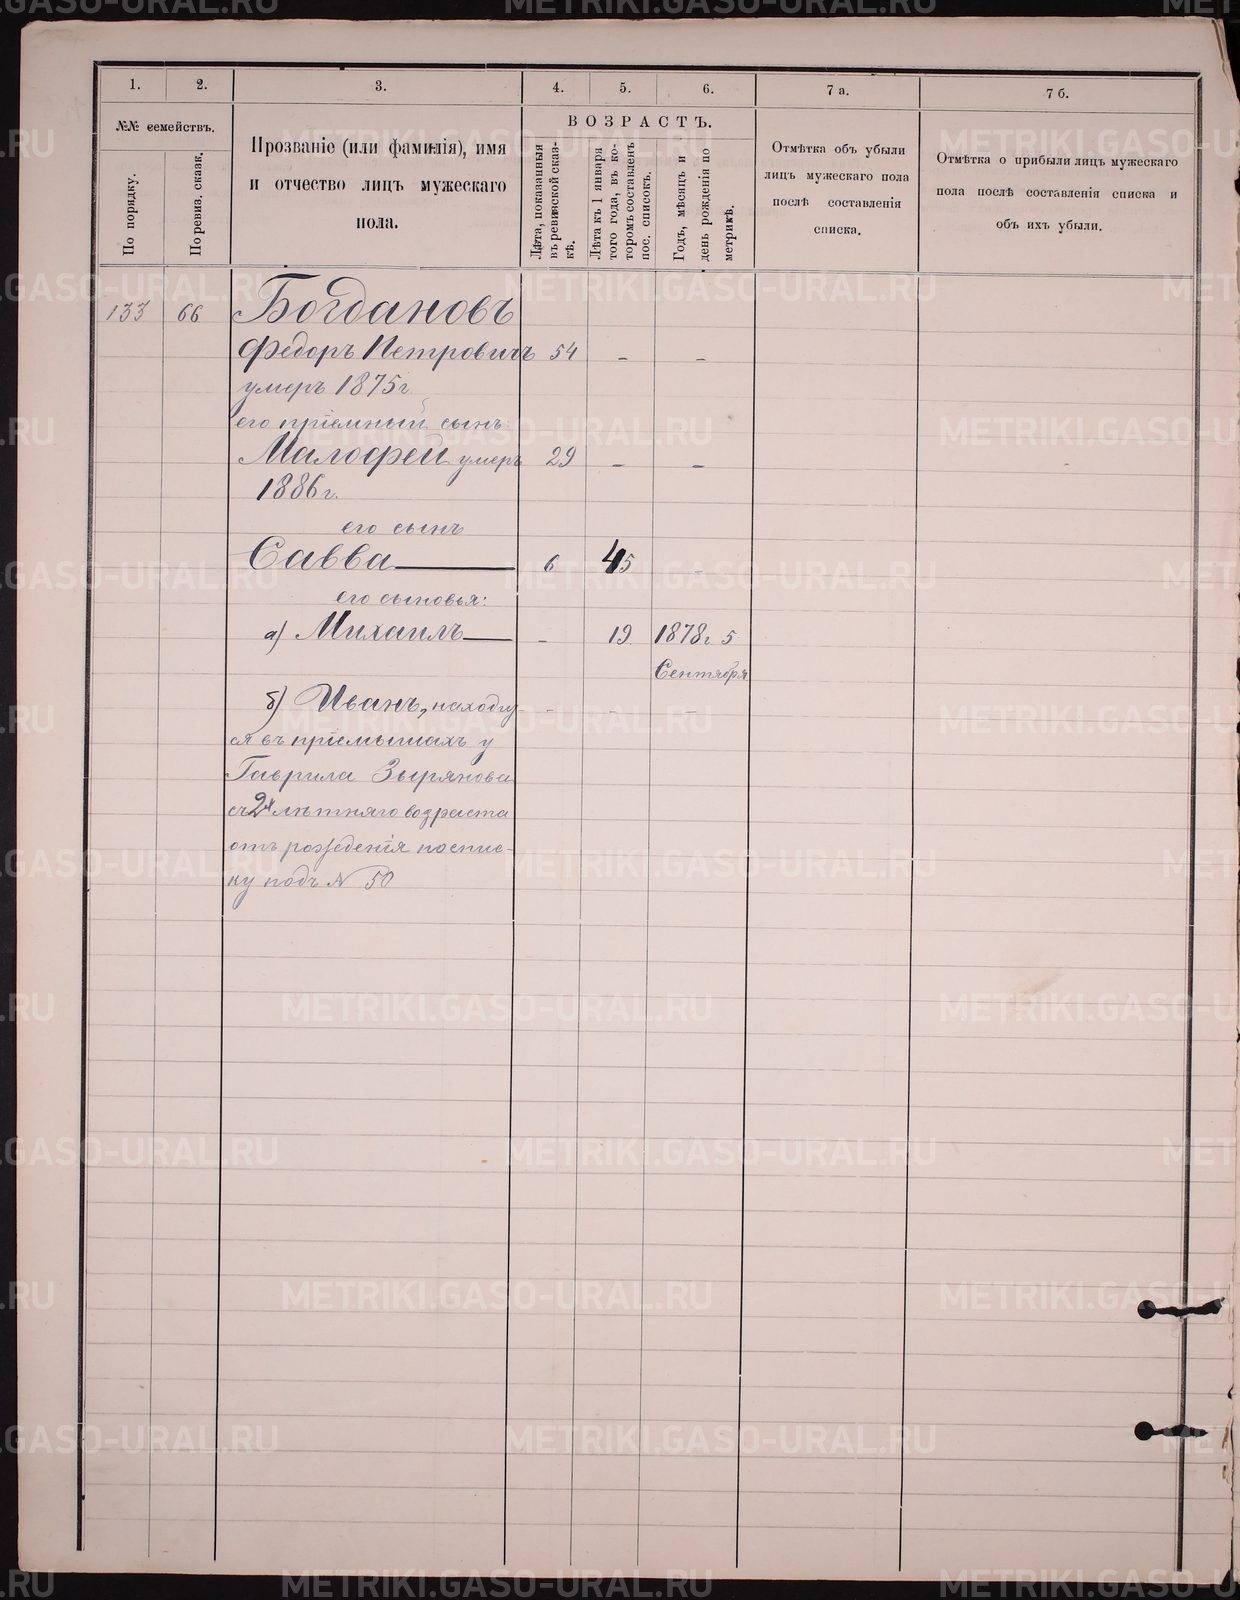 1.
2.
3.
4.
5.
6.
7 а.
7 б.
№№ семействъ.
По порядку.
По ревиз. сказк.
Прозваніе (или фамилія), имя
и отчество лицъ мужескаго
пола.
ВОЗРАСТЪ.
Лѣта, показанныя
въ ревизской сказ-
кѣ.
Лѣта къ 1 января
того года, въ ко-
торомъ составленъ
пос. списокъ.
Годъ, мѣсяцъ и
день рожденія по
метрикѣ.
Отмѣтка объ убыли
лицъ мужескаго пола
послѣ составленія
списка.
Отмѣтка о прибыли лицъ мужескаго
пола послѣ составленія списка и
объ ихъ убыли.
133 66 Богдановъ
Федоръ Петровичъ 54 – –
умеръ 1875 г.
его пріемный сынъ
Малофей умеръ 29 – –
1886 г.
его сынъ
Савва 6 45 –
его сыновья:
а) Михаилъ – 19 1878 г. 5
Сентября
б) Иванъ, находит- – – –
ся въ пріемышахъ у
Гаврила Зырянова
съ 2х лѣтняго возраста
отъ рожденія по спис-
ку подъ № 50
METRIKI.GASO-URAL.RU